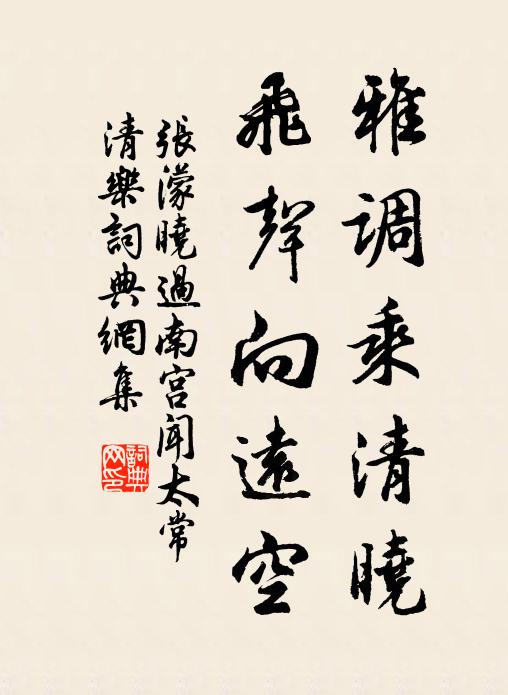 雅調乘清曉
飛聲向遠空
張濛曉過南宮聞太常
清樂詞典網集
詞典网印